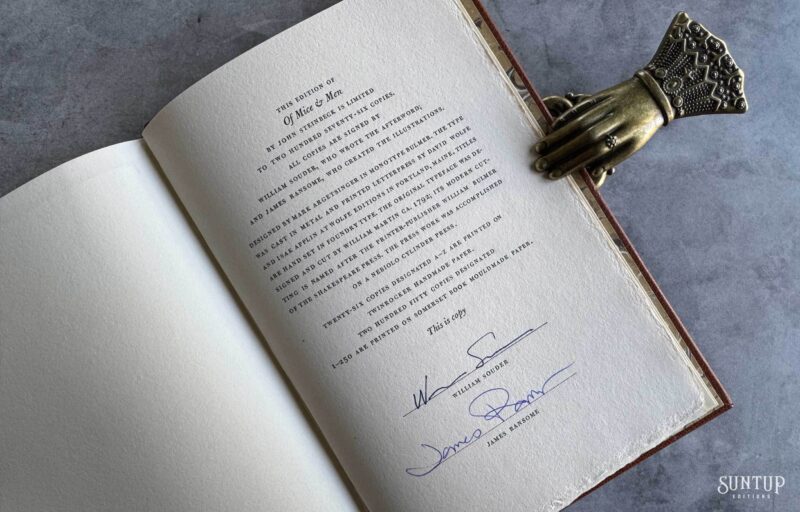 THIS EDITION OF
Of Mice & Men
BY JOHN STEINBECK IS LIMITED
TO TWO HUNDRED SEVENTY-SIX COPIES.
ALL COPIES ARE SIGNED BY
WILLIAM SOUDER, WHO WROTE THE AFTERWORD;
AND JAMES RANSOME, WHO CREATED THE ILLUSTRATIONS.
DESIGNED BY MARK ARGETSINGER IN MONOTYPE BULMER. THE TYPE
WAS CAST IN METAL AND PRINTED LETTERPRESS BY DAVID WOLFE
AND ISAK APPLIN AT WOLFE EDITIONS IN PORTLAND, MAINE. TITLES
ARE HAND SET IN FOUNDRY TYPE. THE ORIGINAL TYPEFACE WAS DE-
SIGNED AND CUT BY WILLIAM MARTIN CA. 1792; ITS MODERN CUT-
TING IS NAMED AFTER THE PRINTER-PUBLISHER WILLIAM BULMER
OF THE SHAKESPEARE PRESS. THE PRESS WORK WAS ACCOMPLISHED
ON A NEBIOLO CYLINDER PRESS.
TWENTY-SIX COPIES DESIGNATED A–Z ARE PRINTED ON
TWINROCKER HANDMADE PAPER.
TWO HUNDRED FIFTY COPIES DESIGNATED
1–250 ARE PRINTED ON SOMERSET BOOK MOULDMADE PAPER.
This is copy
WILLIAM SOUDER
James Ransome
JAMES RANSOME
SUNTUP
EDITIONS